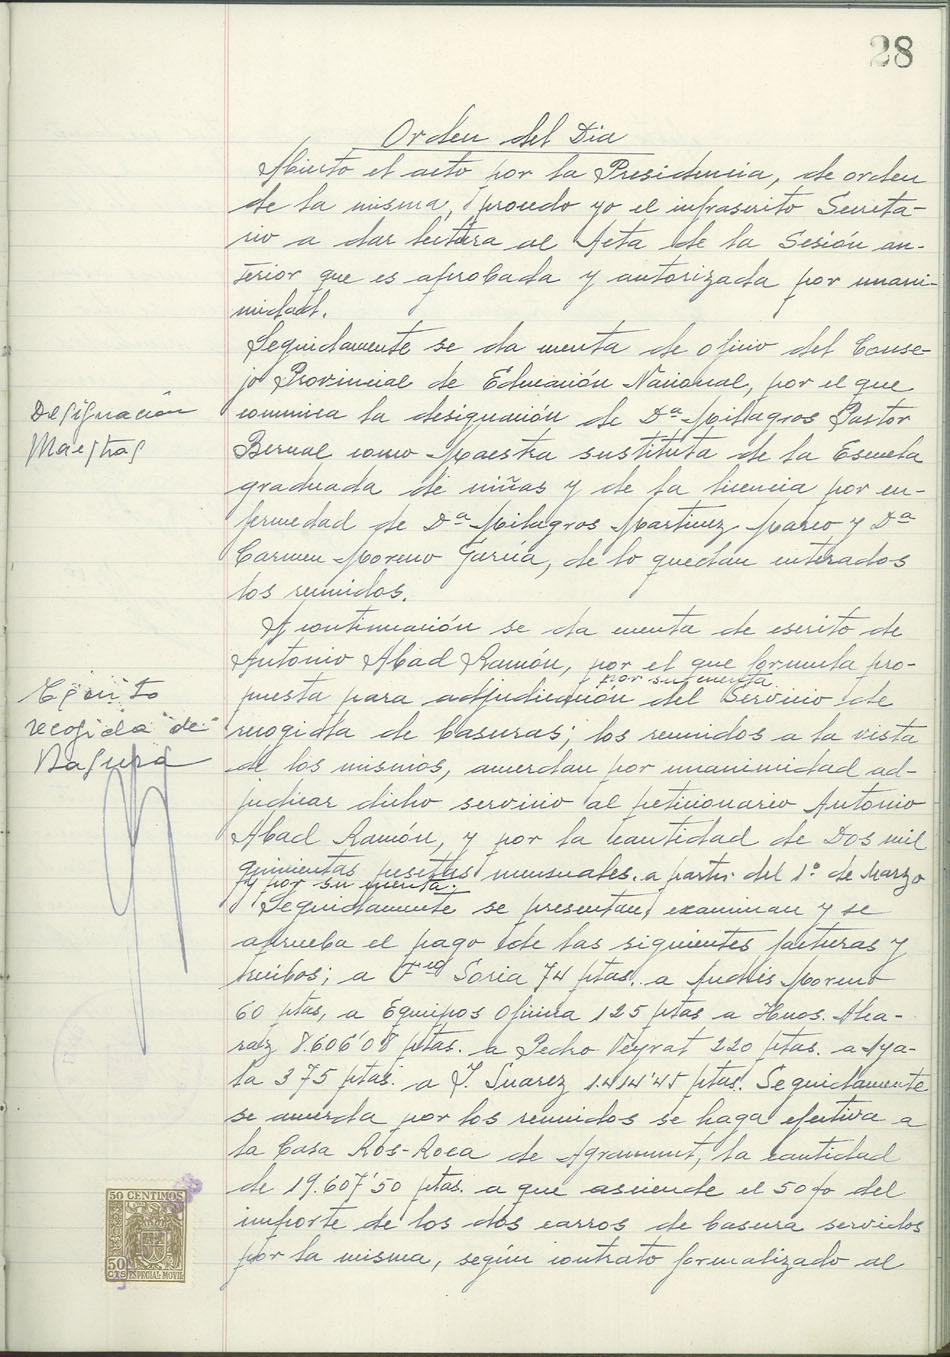 28
Orden del Dia
Abierto el acto por la Presidencia, de orden
de la misma, procedo yo el infrascrito Secreta-
rio a dar lectura al Acta de la Sesión an-
terior que es aprobada y autorizada por unani-
midad.
Seguidamente se da cuenta de oficio del Conse-
jo Provincial de Educación Nacional, por el que
comunica la designación de Dª Milagros Pastor
Bernal como Maestra sustituta de la Escuela
graduada de niñas y de la licencia por en-
fermedad de Dª Milagros Martinez Marco y Dª
Carmen Moreno García, de lo quedan enterados
los reunidos.
Designación
Maestras
A continuación se da cuenta de escrito de
Antonio Abad Ramón, por el que formula pro-
por su cuenta
puesta para adjudicación del Servicio de
recogida de basuras; los reunidos a la vista
de los mismos, acuerdan por unanimidad ad-
judicar dicho servicio al peticionario Antonio
Abad Ramón, y por la cantidad de Dos mil
quinientas pesetas mensuales. a partir del 1º de Marzo
y por su cuenta.
recogida de
Basura
Seguidamente se presentan, examinan y se
aprueba el pago de las siguientes facturas y
recibos; a Fco Soria 74 ptas. a Andrés Moreno
60 ptas, a Equipos Oficina 125 ptas a Hnos. Alca-
raz 8.606'08 ptas. a Pedro Veyrat 220 ptas. a Aya-
la 375 ptas. a J. Suarez 1.414'45 ptas. Seguidamente
se acuerda por los reunidos se haga efectiva a
la Casa Rós-Roca de Agramunt, la cantidad
de 19.607'50 ptas. a que asciende el 50% del
importe de los dos carros de basura servidos
por la misma, según contrato formalizado al
50 CENTIMOS
50
CTS ESPECIAL MOVIL